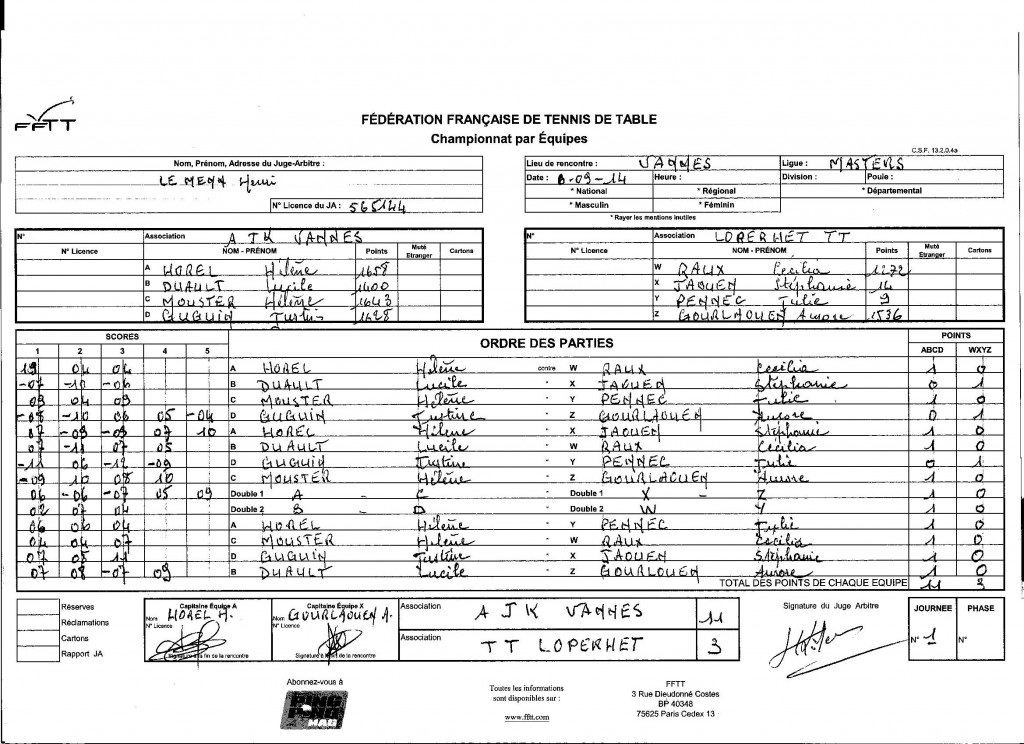 FFTT
FÉDÉRATION FRANÇAISE DE TENNIS DE TABLE
Championnat par Équipes
C.S.F. 13.2.0.4a
Nom, Prénom, Adresse du Juge-Arbitre :
LE MENN Henri
N° Licence du JA : 565144
Lieu de rencontre : VANNES Ligue : MASTERS
Date : 6-09-14 Heure : Division : Poule :
* National * Régional * Départemental
* Masculin * Féminin
* Rayer les mentions inutiles
N° Association AJK VANNES
N° Licence NOM - PRÉNOM Points Muté Etranger Cartons
A HOREL Hélène 1658
B DUAULT Lucile 1400
C MOUSTER Hélène 1643
D GUGUIN Justine 1428
N° Association LOPERHET TT
N° Licence NOM - PRÉNOM Points Muté Etranger Cartons
W RAUX Cecilia 1272
X JAOUEN Stéphanie 14
Y PENNEC Julie 9
Z GOURLAOUEN Aurore 1536
SCORES ORDRE DES PARTIES POINTS
1 2 3 4 5 ABCD WXYZ
19 04 04 A HOREL Hélène contre W RAUX Cecilia 1 0
-07 -10 -06 B DUAULT Lucile - X JAOUEN Stéphanie 0 1
09 04 09 C MOUSTER Hélène - Y PENNEC Julie 1 0
-08 -10 06 05 -04 D GUGUIN Justine - Z GOURLAOUEN Aurore 0 1
07 -09 -09 07 10 A HOREL Hélène - X JAOUEN Stéphanie 1 0
07 -11 07 05 B DUAULT Lucile - W RAUX Cécilia 1 0
-11 06 -12 -09 D GUGUIN Justine - Y PENNEC Julie 0 1
-09 10 08 10 C MOUSTER Hélène - Z GOURLAOUEN Aurore 1 0
06 -06 -07 05 09 Double 1 A - C - Double 1 X - Z 1 0
02 07 04 Double 2 B - D - Double 2 W Y 1 0
06 06 04 A HOREL Hélène - Y PENNEC Julie 1 0
04 04 07 C MOUSTER Hélène - W RAUX Cecilia 1 0
07 05 11 D GUGUIN Justine - X JAOUEN Stéphanie 1 0
07 08 -07 09 B DUAULT Lucile - Z GOURLOUEN Aurore 1 0
TOTAL DES POINTS DE CHAQUE EQUIPE 11 3
Réserves
Réclamations
Cartons
Rapport JA
Capitaine Équipe A
Nom HOREL H.
N° Licence
Signature à la fin de la rencontre
Capitaine Équipe X
Nom GOURLAOUEN A.
N° Licence
Signature à la fin de la rencontre
Association AJK VANNES 11
Association TT LOPERHET 3
Signature du Juge Arbitre
JOURNEE PHASE
N° 1 N°
Abonnez-vous à
PING PONG MAG
Toutes les informations
sont disponibles sur :
www.fftt.com
FFTT
3 Rue Dieudonné Costes
BP 40348
75625 Paris Cedex 13